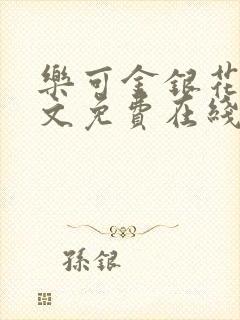 樂可金銀花
文免費在綫
孫銀